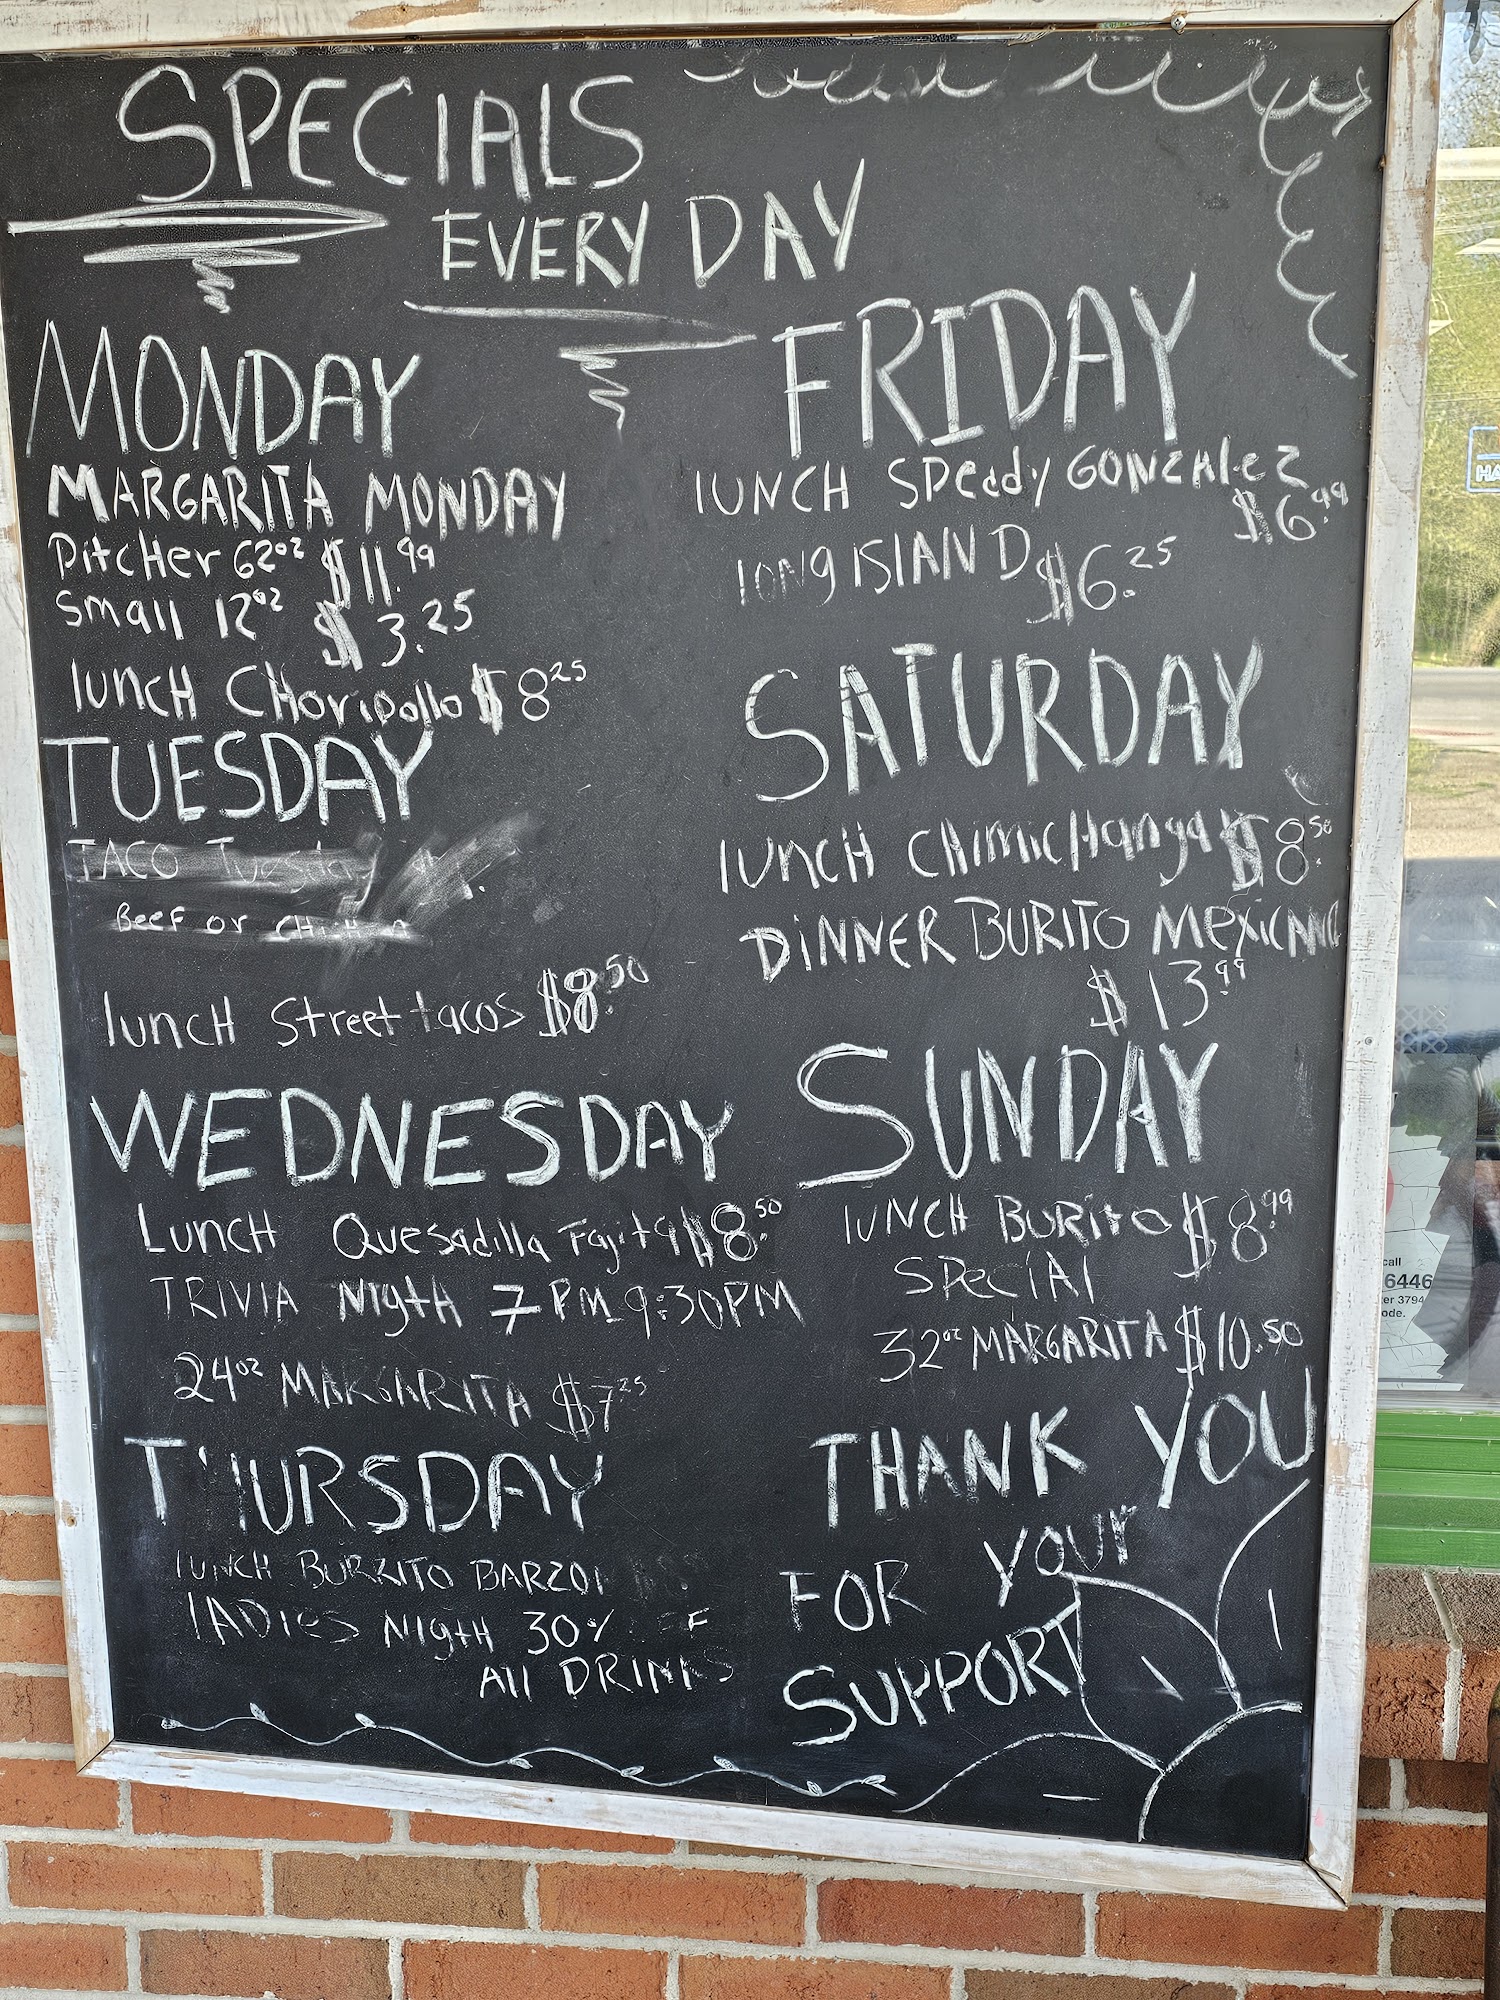 SPECIALS
EVERY DAY
MONDAY
MARGARITA MONDAY
Pitcher 62oz $11.99
Small 12oz $3.25
lunch Choripollo $8.25
TUESDAY
TACO Tuesday
Beef or Chicken
lunch Street tacos $8.50
WEDNESDAY
Lunch Quesadilla Fajita $8.50
TRIVIA Nigth 7PM 9:30PM
24oz MARGARITA $7.25
THURSDAY
lUNCH BURRITO BARZOI
lADIES Nigth 30% OFF
All DRINKS
FRIDAY
lUNCH Speddy GONZAlez
$6.99
lONg ISlAND $6.25
SATURDAY
lUncH Chimichanga $8.50
DiNNER BURITO MexicANO
$13.99
SUNDAY
lUNCH BURITO $8.99
SPeciAl
32oz MARGARITA $10.50
THANK YOU
FOR YOUR
SUPPORT
HA
call
6446
er 3794
ode.